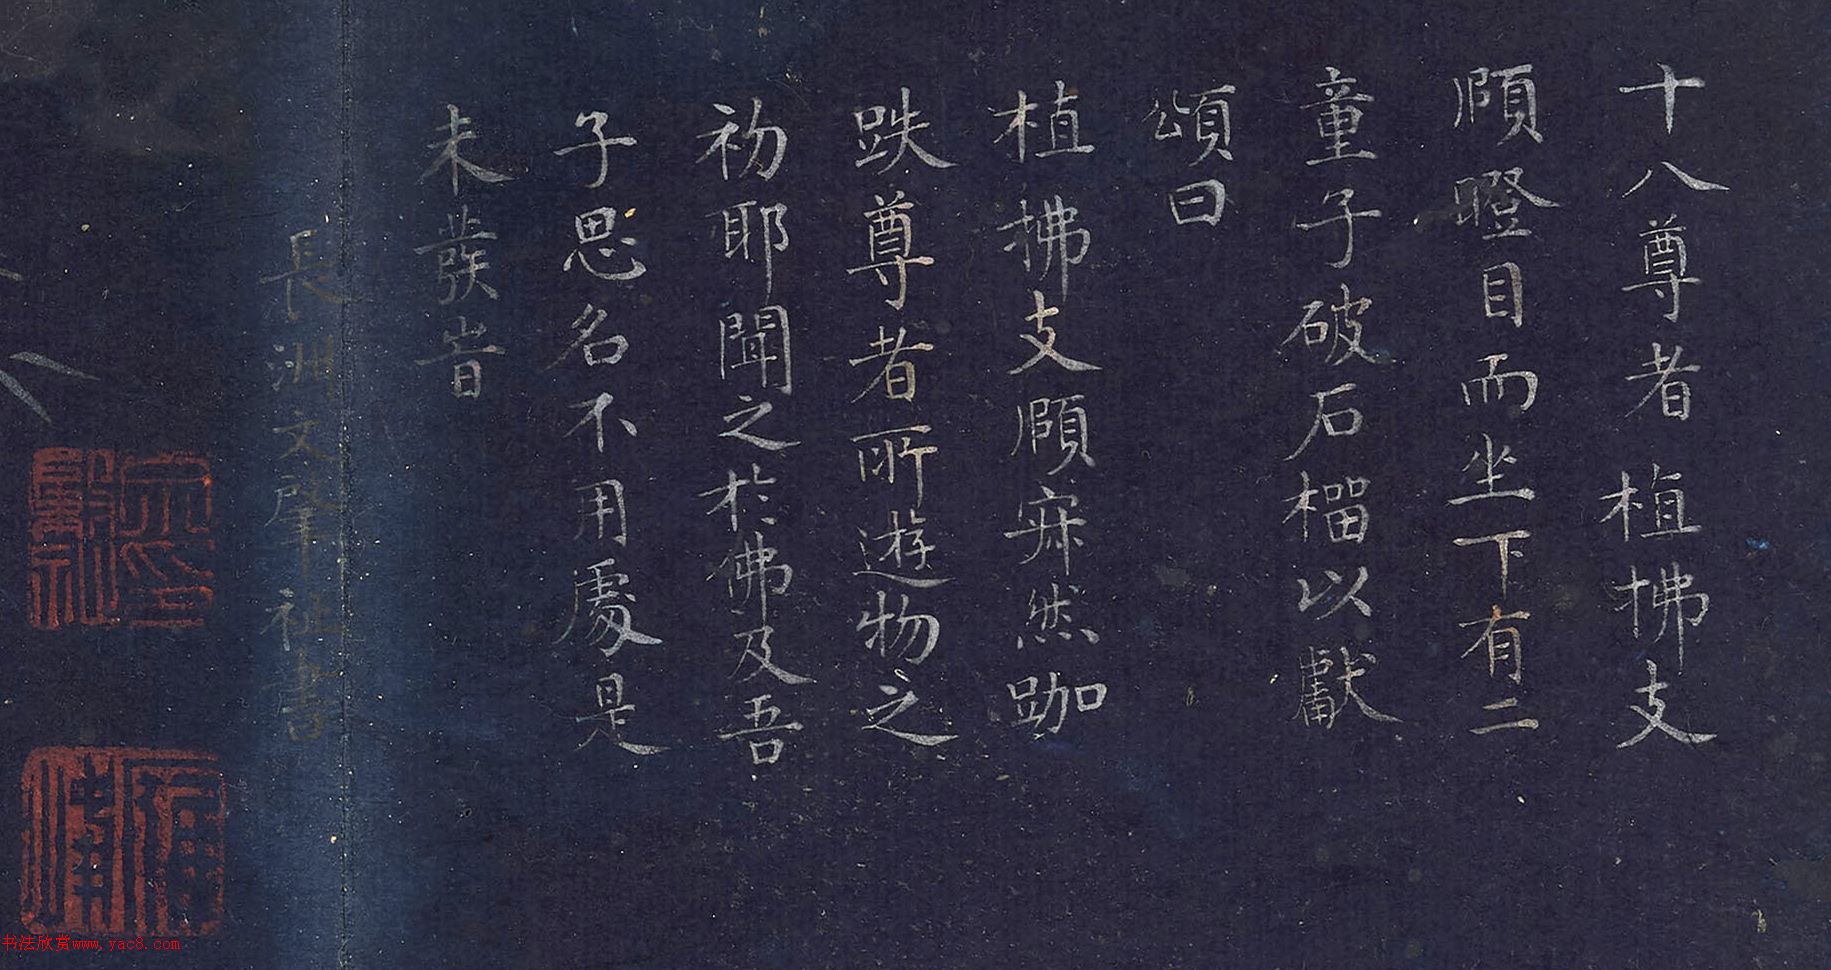 十八尊者植拂支
頤瞪目而坐下有二
童子破石榴以獻
頌曰
植拂支頤寂然跏
趺尊者所遊物之
初耶聞之於佛及吾
子思名不用處是
未發旹
長洲文肇祉書
书法欣赏www.yac8.com